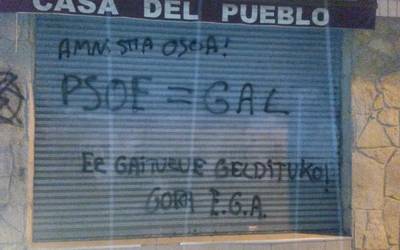 CASA DEL PUEBLO
AMNISTIA OSOA!
PSOE = GAL
EZ GAITUZUE GELDITUKO!
GORA E.G.A.